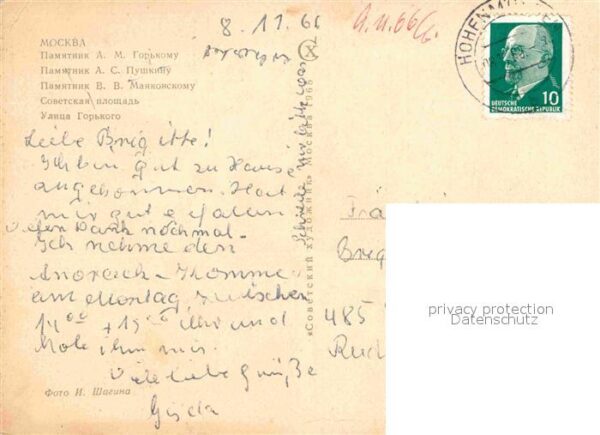 8.11.66
9.11.66
МОСКВА
Памятник А. М. Горькому
Памятник А. С. Пушкину
Памятник В. В. Маяковскому
Советская площадь
Улица Горького
Leibe Brigitte!
Ich bin gut zu Hause
angekommen. Hat
mir gut gefallen
Vielen Dank nochmal.
Ich nehme den
Anorack. Komme
am Montag zwischen
14 00 + 15 Uhr und
hole ihn mir.
Viele liebe Grüße
Gisela
Фото И. Шагина
«Советский художник» Москва 1965
Schreibe mir bitte
HOHENM
10
DEUTSCHE
DEMOKRATISCHE REPUBLIK
Frä
Brig
485
privacy protection
Datenschutz